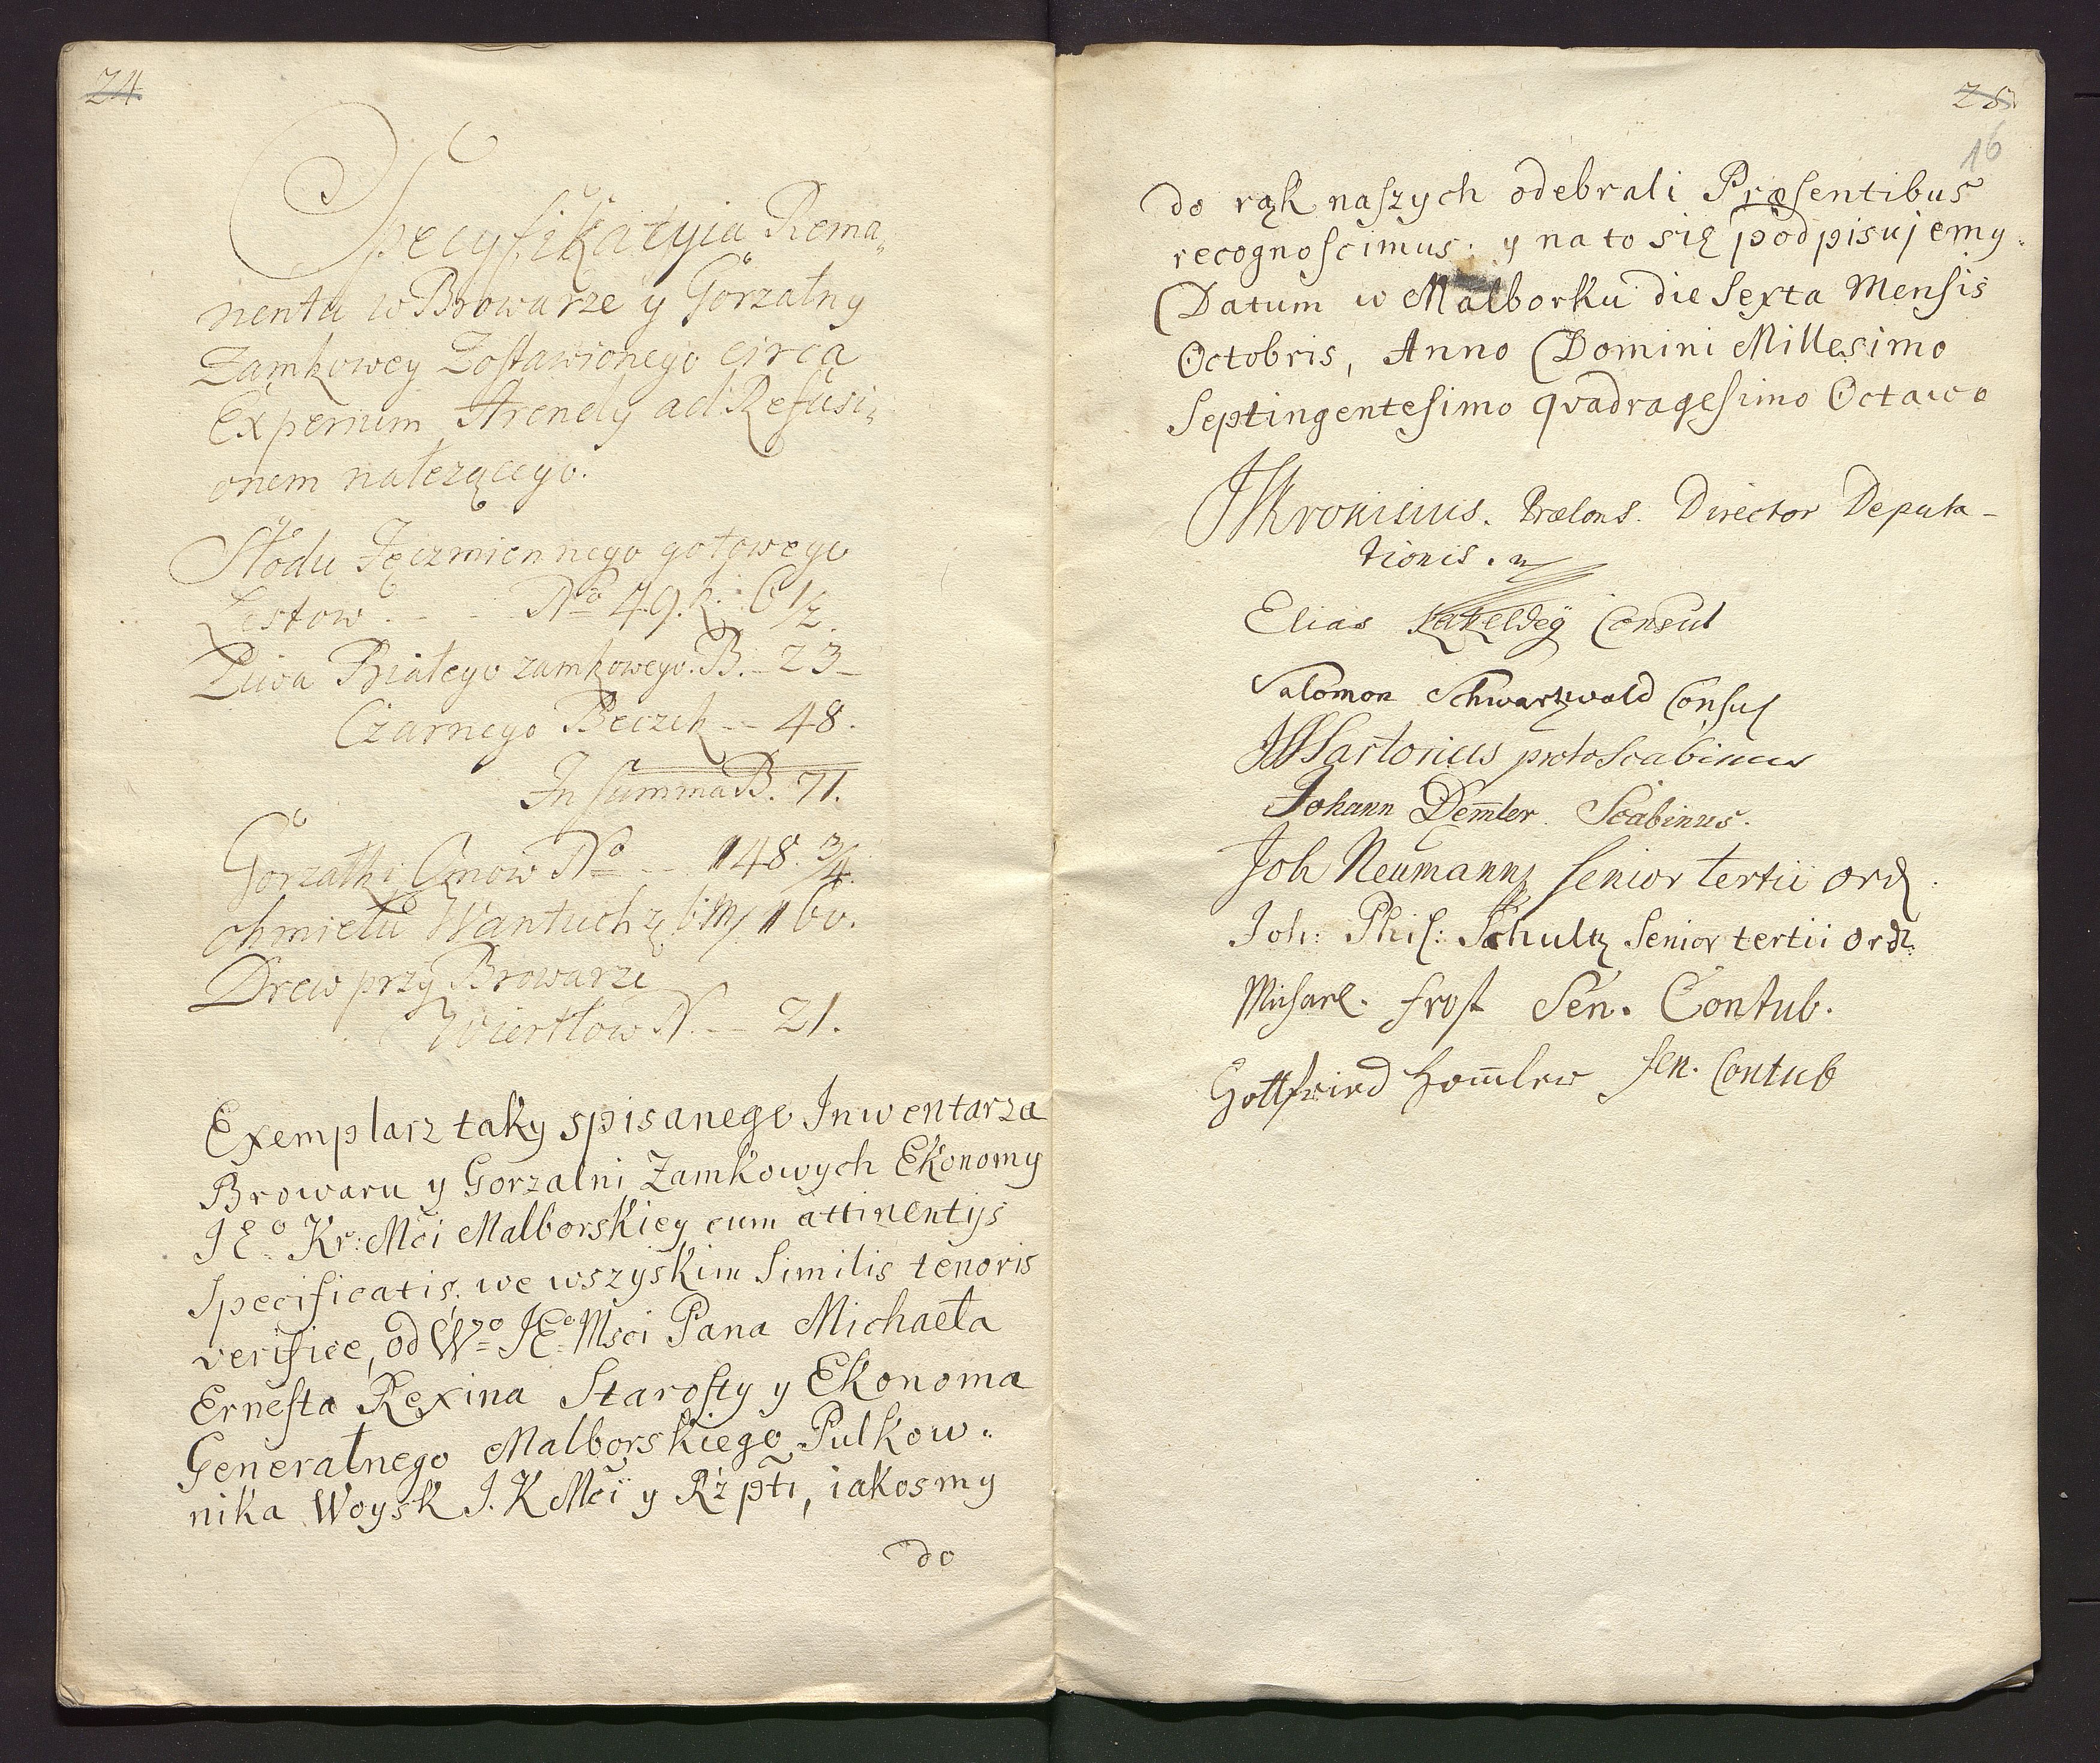 24.
Specyfikacyia Rema„
nentu w Browarze y Gorzalny
Zamkowey Zostawionego circa
Expirium Arendy ad Refusi„
onem należącego.
Słodu Jęczmiennego gotowego
Lestow - - - No 49. k: 6 1/2.
Piwa Białego zamkowego. B. - 23 -
Czarnego Beczek - - 48.
In summa B. 71.
Gorzałki Omow No - - 148. 3/4.
chmielu Wantuch z 60.
Drew przy Browarze
Wiertlow N. - - 21.
Exemplarz taky spisanego Inwentarza
Browaru y Gorzalni Zamkowych Ekonomy
JEo Kr: Mći Malborskiey cum attinentijs
Specificatis, we wszyskim Similis tenoris
verifice, od Wgo JEo Msci Pana Michaeła
Ernesta Rexina Starosty y Ekonoma
Generalnego Malborskiego Pulkow„
nika Woysk J. K Mći y Rzpti, iakosmy
do
25.
16
do rąk naszych odebrali Præsentibus
recognoscimus. y na to się podpisujemy.
Datum w Malborku die Sexta Mensis
Octobris, Anno Domini Millesimo
Septingentesimo qvadragesimo Octawo
Director Deputa-
tionis.
Elias Kakeldeÿ Consul
Salomon Schwartzwald Consul
Sartorius protoScabinus
Johann Dem̄ler. Scabinus.
Joh Neumann senior tertii ord.
Joh: Phil: Schultz Senior tertii ord:
Michael. Frost Sen. Contub.
Gottfried Hom̄ler sen. Contub